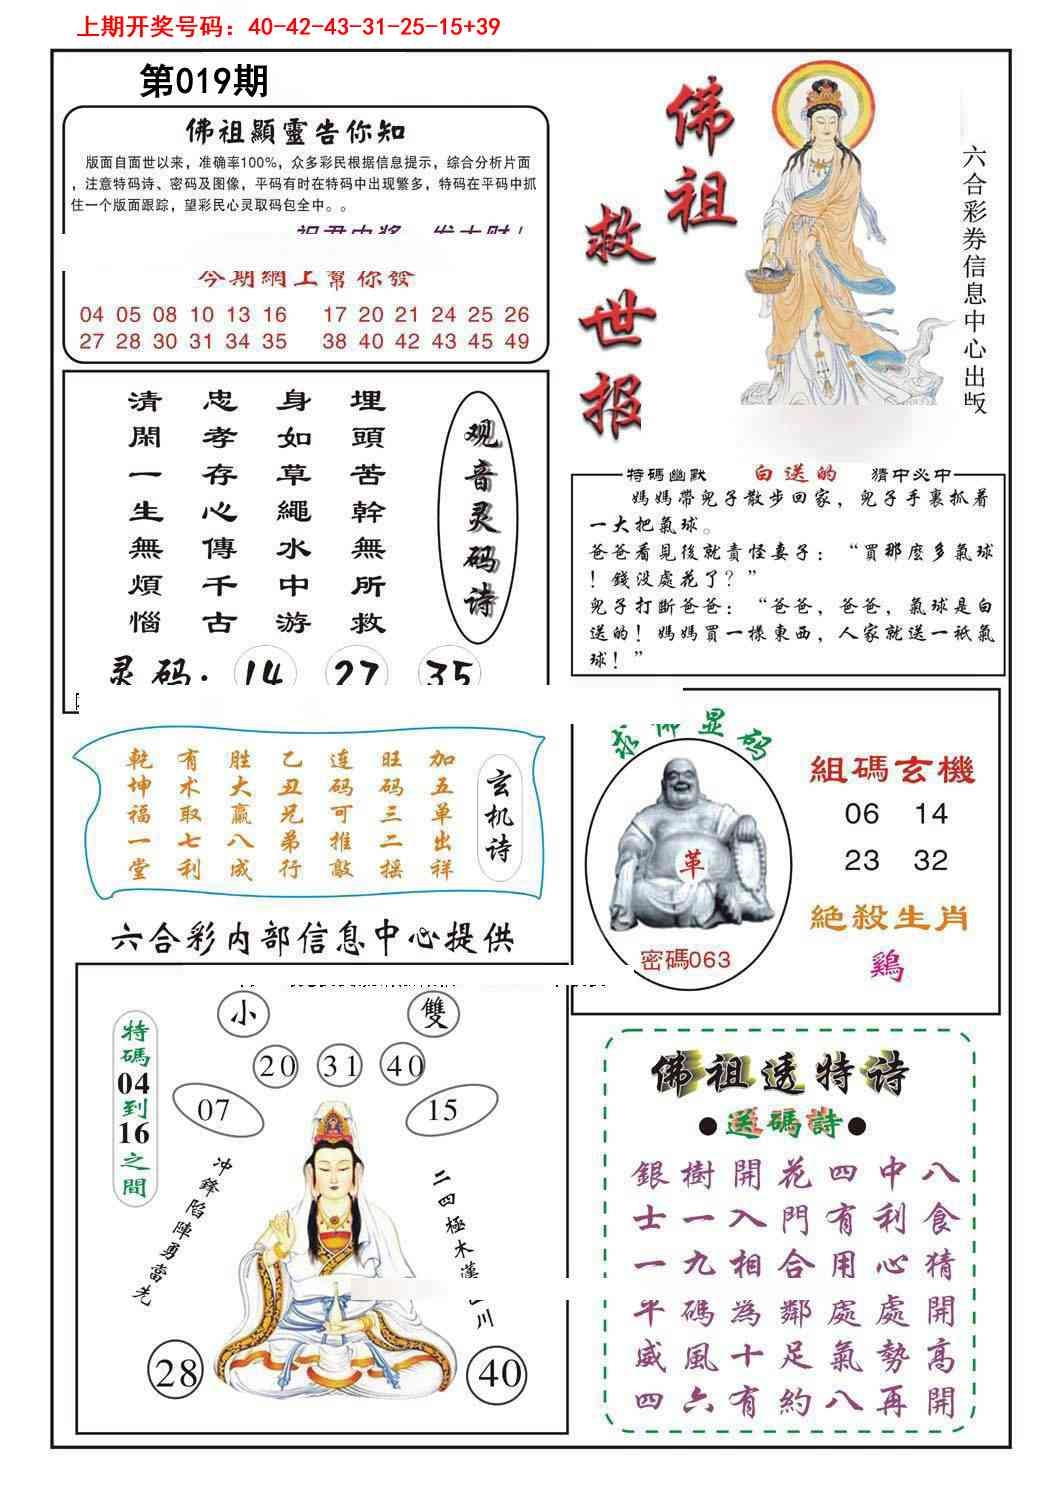 上期开奖号码：40-42-43-31-25-15+39
第019期
佛祖顯靈告你知
版面自面世以来，准确率100%，众多彩民根据信息提示，综合分析片面
，注意特码诗、密码及图像，平码有时在特码中出现繁多，特码在平码中抓
住一个版面跟踪，望彩民心灵取码包全中。。
今期網上幫你發
04 05 08 10 13 16 17 20 21 24 25 26
27 28 30 31 34 35 38 40 42 43 45 49
佛祖
救世报
六合彩券信息中心出版
观音灵码诗
埋頭苦幹無所救
身如草繩水中游
忠孝存心傳千古
清閑一生無煩惱
灵码: 14 27 35
特碼幽默 白送的 猜中必中
媽媽帶兒子散步回家，兒子手裏抓着
一大把氣球。
爸爸看見後就責怪妻子：“買那麽多氣球
！錢没處花了？”
兒子打斷爸爸：“爸爸，爸爸，氣球是白
送的！媽媽買一樣東西，人家就送一衹氣
球！”
玄机诗
加五单出祥
旺码三二摇
连码可推敲
乙丑兄弟行
胜大赢八成
有术取七利
乾坤福一堂
求佛显码
革
密碼063
組碼玄機
06 14
23 32
絶殺生肖
鷄
六合彩内部信息中心提供
小 雙
20 31 40
07 15
特碼04到16之間
冲鋒陷陣勇當先
二四極木漢
川
28 40
佛祖透特诗
●送碼詩●
銀樹開花四中八
士一入門有利食
一九相合用心猜
平碼為鄰處處開
威風十足氣勢高
四六有約八再開